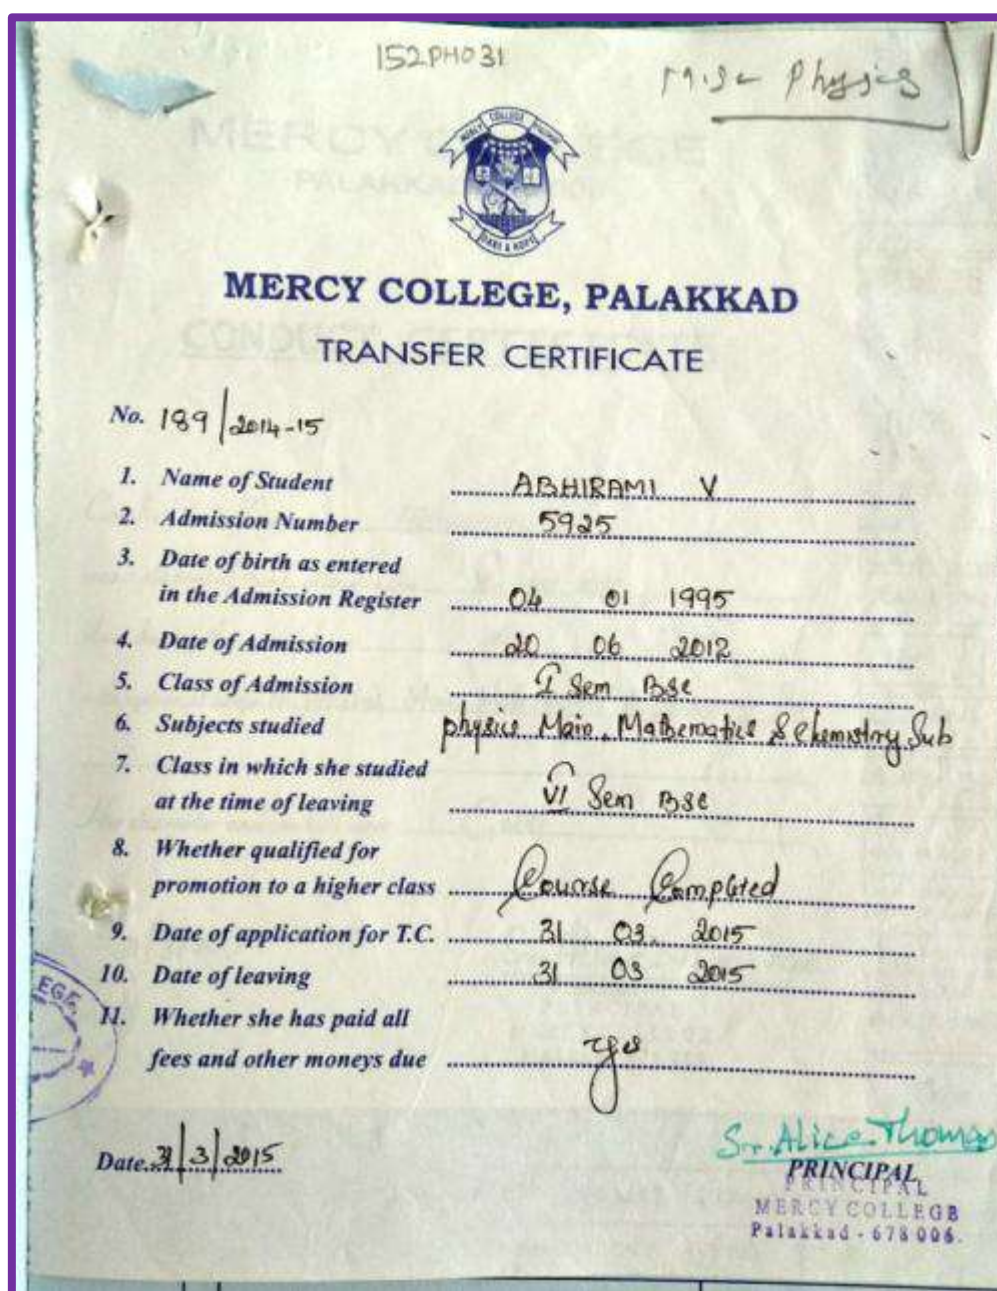 152PH031
M.Sc Physics
MERCY COLLEGE PALAKKAD
MERCY COLLEGE, PALAKKAD
TRANSFER CERTIFICATE
No. 189/2014-15
1. Name of Student ABHIRAMI V
2. Admission Number 5925
3. Date of birth as entered
in the Admission Register 04 01 1995
4. Date of Admission 20 06 2012
5. Class of Admission I Sem BSc
6. Subjects studied physics Main, Mathematics & Chemistry Sub
7. Class in which she studied
at the time of leaving VI Sem BSc
8. Whether qualified for
promotion to a higher class Course Completed
9. Date of application for T.C. 31 03. 2015
10. Date of leaving 31 03 2015
11. Whether she has paid all
fees and other moneys due yes
EGE
Date 31/3/2015
Sr. Alice Thomas
PRINCIPAL
PRINCIPAL
MERCY COLLEGE
Palakkad - 678 006.